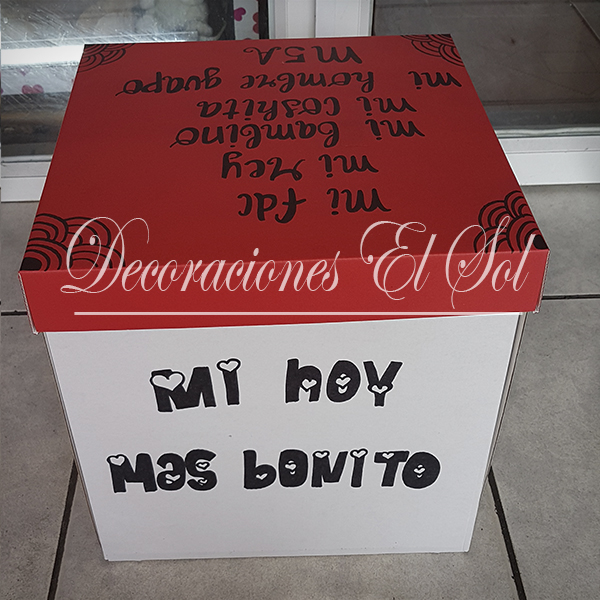 mi fdc
mi rey
mi bambino
mi coshita
mi hombre guapo
MSA
Decoraciones El Sol
Mi hoy
Mas bonito